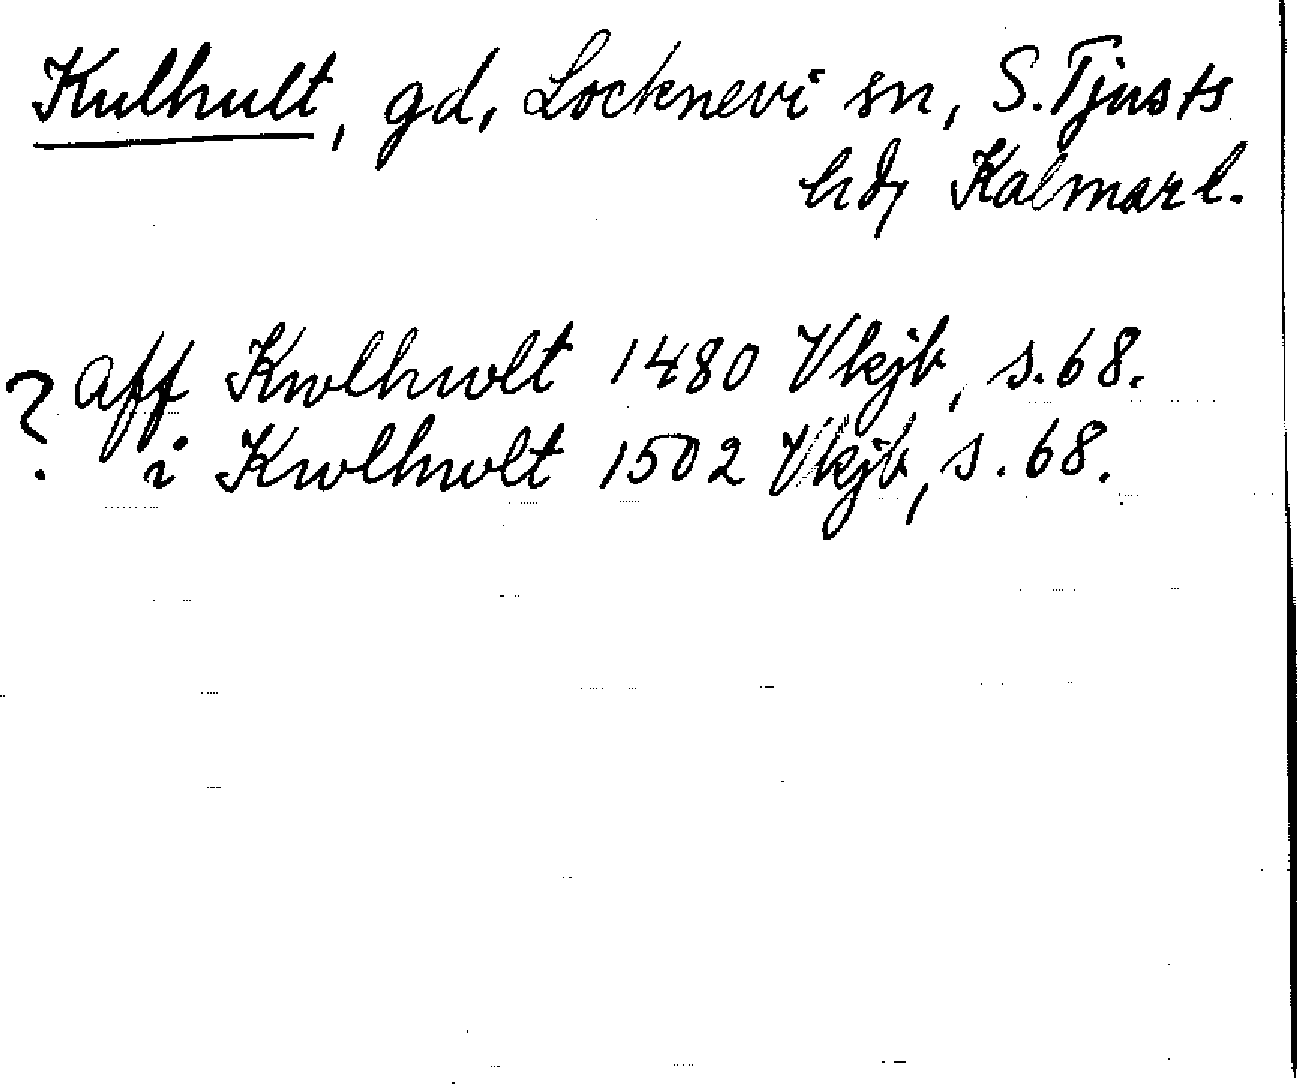 Kulhult, gd, Locknevi sn, S. Tjusts
hd, Kalmar l.
? aff Kwlhwlt 1480 Vkjb, s. 68.
i Kwlhwlt 1502 Vkjb, s. 68.